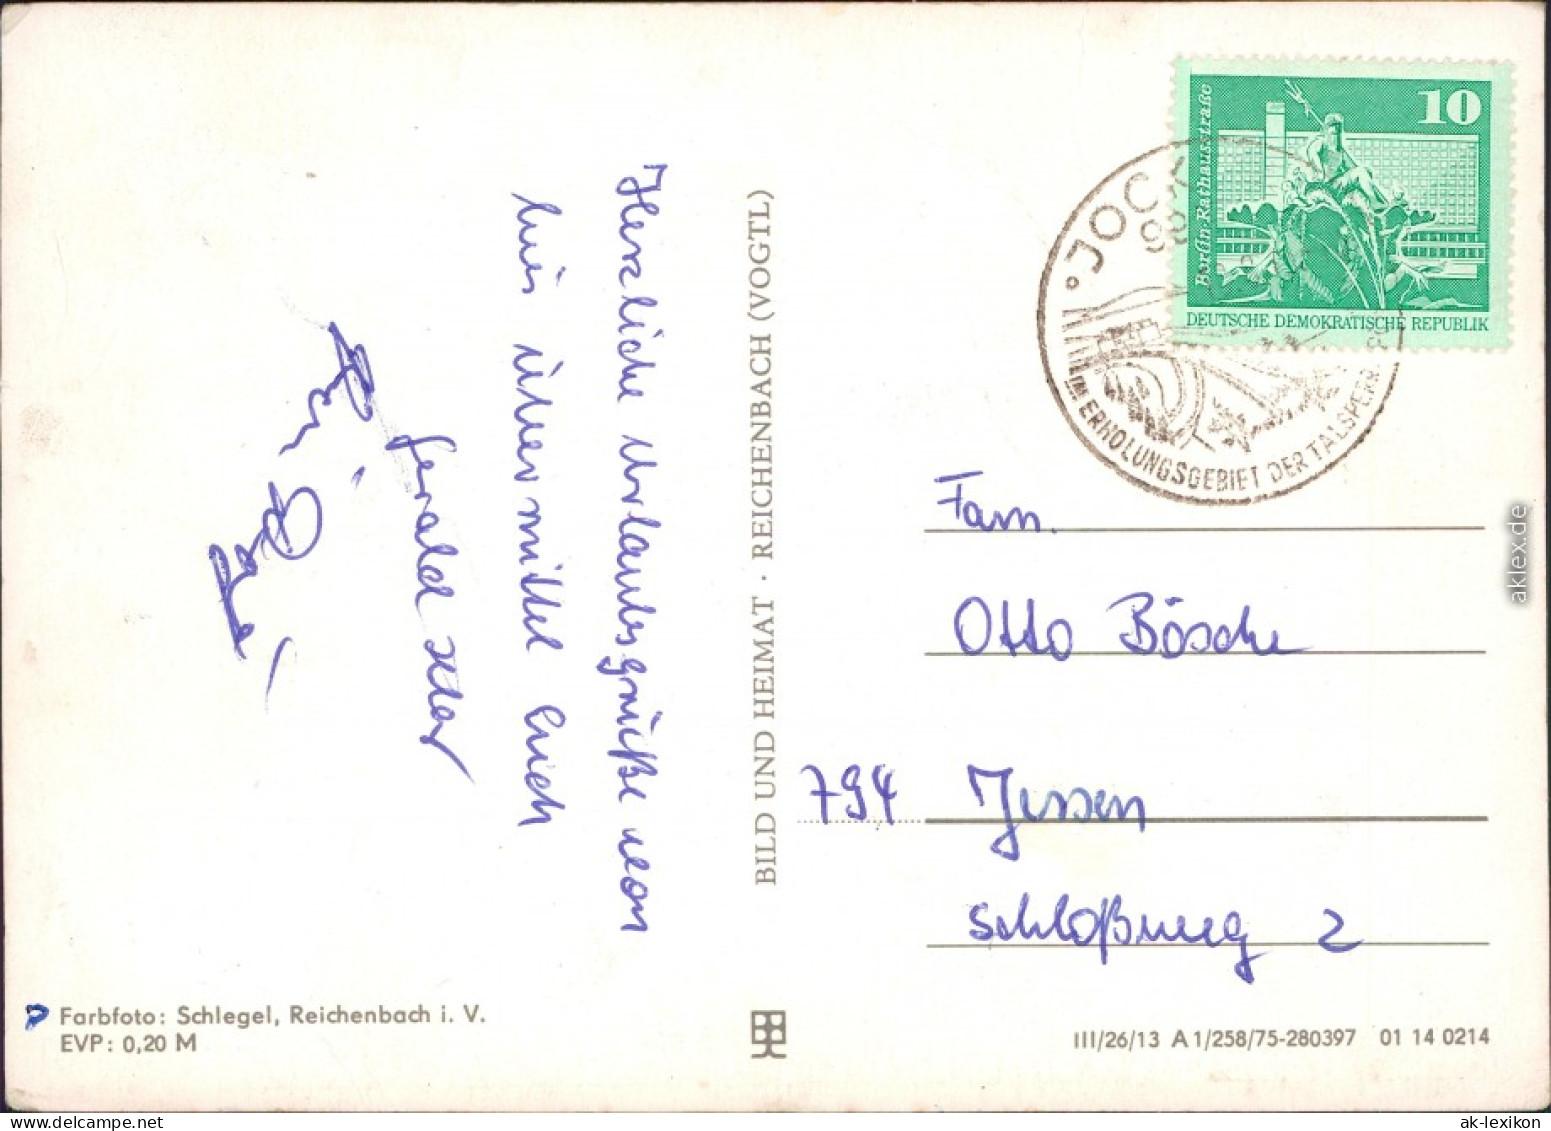 Herzliche Urlaubsgrüße von
hier übermittel Euch
Gerald
BILD UND HEIMAT · REICHENBACH (VOGTL)
Farbfoto: Schlegel, Reichenbach i. V.
EVP: 0,20 M
10
Berlin-Rathausstraße
DEUTSCHE DEMOKRATISCHE REPUBLIK
JOCK
IM ERHOLUNGSGEBIET DER TALSPERR
Fam.
Otto Bösche
794 Jessen
Schloßweg 2
III/26/13 A 1/258/75-280397 01 14 0214
aklex.de
ak-lexikon